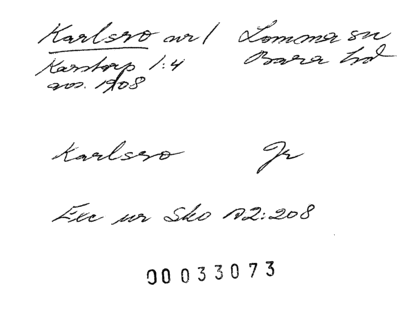 Karlsro nr 1 Lomma sn
Karstorp 1:4 Bara hd
avs. 1908
Karlsro Jr
Exc ur Sko A2:208
00033073